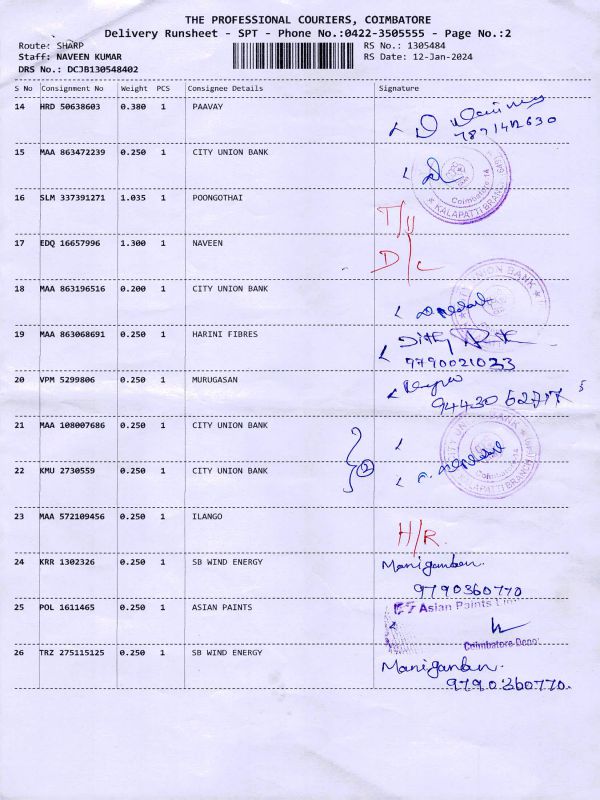 THE PROFESSIONAL COURIERS, COIMBATORE
Delivery Runsheet - SPT - Phone No.:0422-3505555 - Page No.:2
Route: SHARP
Staff: NAVEEN KUMAR
DRS No.: DCJB130548402
RS No.: 1305484
RS Date: 12-Jan-2024
S No Consignment No Weight PCS Consignee Details Signature
14 HRD 50638603 0.380 1 PAAVAY
15 MAA 863472239 0.250 1 CITY UNION BANK
Coimbatore 14
KALAPATTI BRANCH
16 SLM 337391271 1.035 1 POONGOTHAI
17 EDQ 16657996 1.300 1 NAVEEN D/C
18 MAA 863196516 0.200 1 CITY UNION BANK
UNION BANK
19 MAA 863068691 0.250 1 HARINI FIBRES
9790021033
20 VPM 5299806 0.250 1 MURUGASAN
21 MAA 108007686 0.250 1 CITY UNION BANK
CITY UNION BANK
22 KMU 2730559 0.250 1 CITY UNION BANK
2
KALAPATTI BRANCH
23 MAA 572109456 0.250 1 ILANGO H/R.
24 KRR 1302326 0.250 1 SB WIND ENERGY
9790360770
25 POL 1611465 0.250 1 ASIAN PAINTS
Asian Paints
Coimbatore Depot
26 TRZ 275115125 0.250 1 SB WIND ENERGY
9790360770.